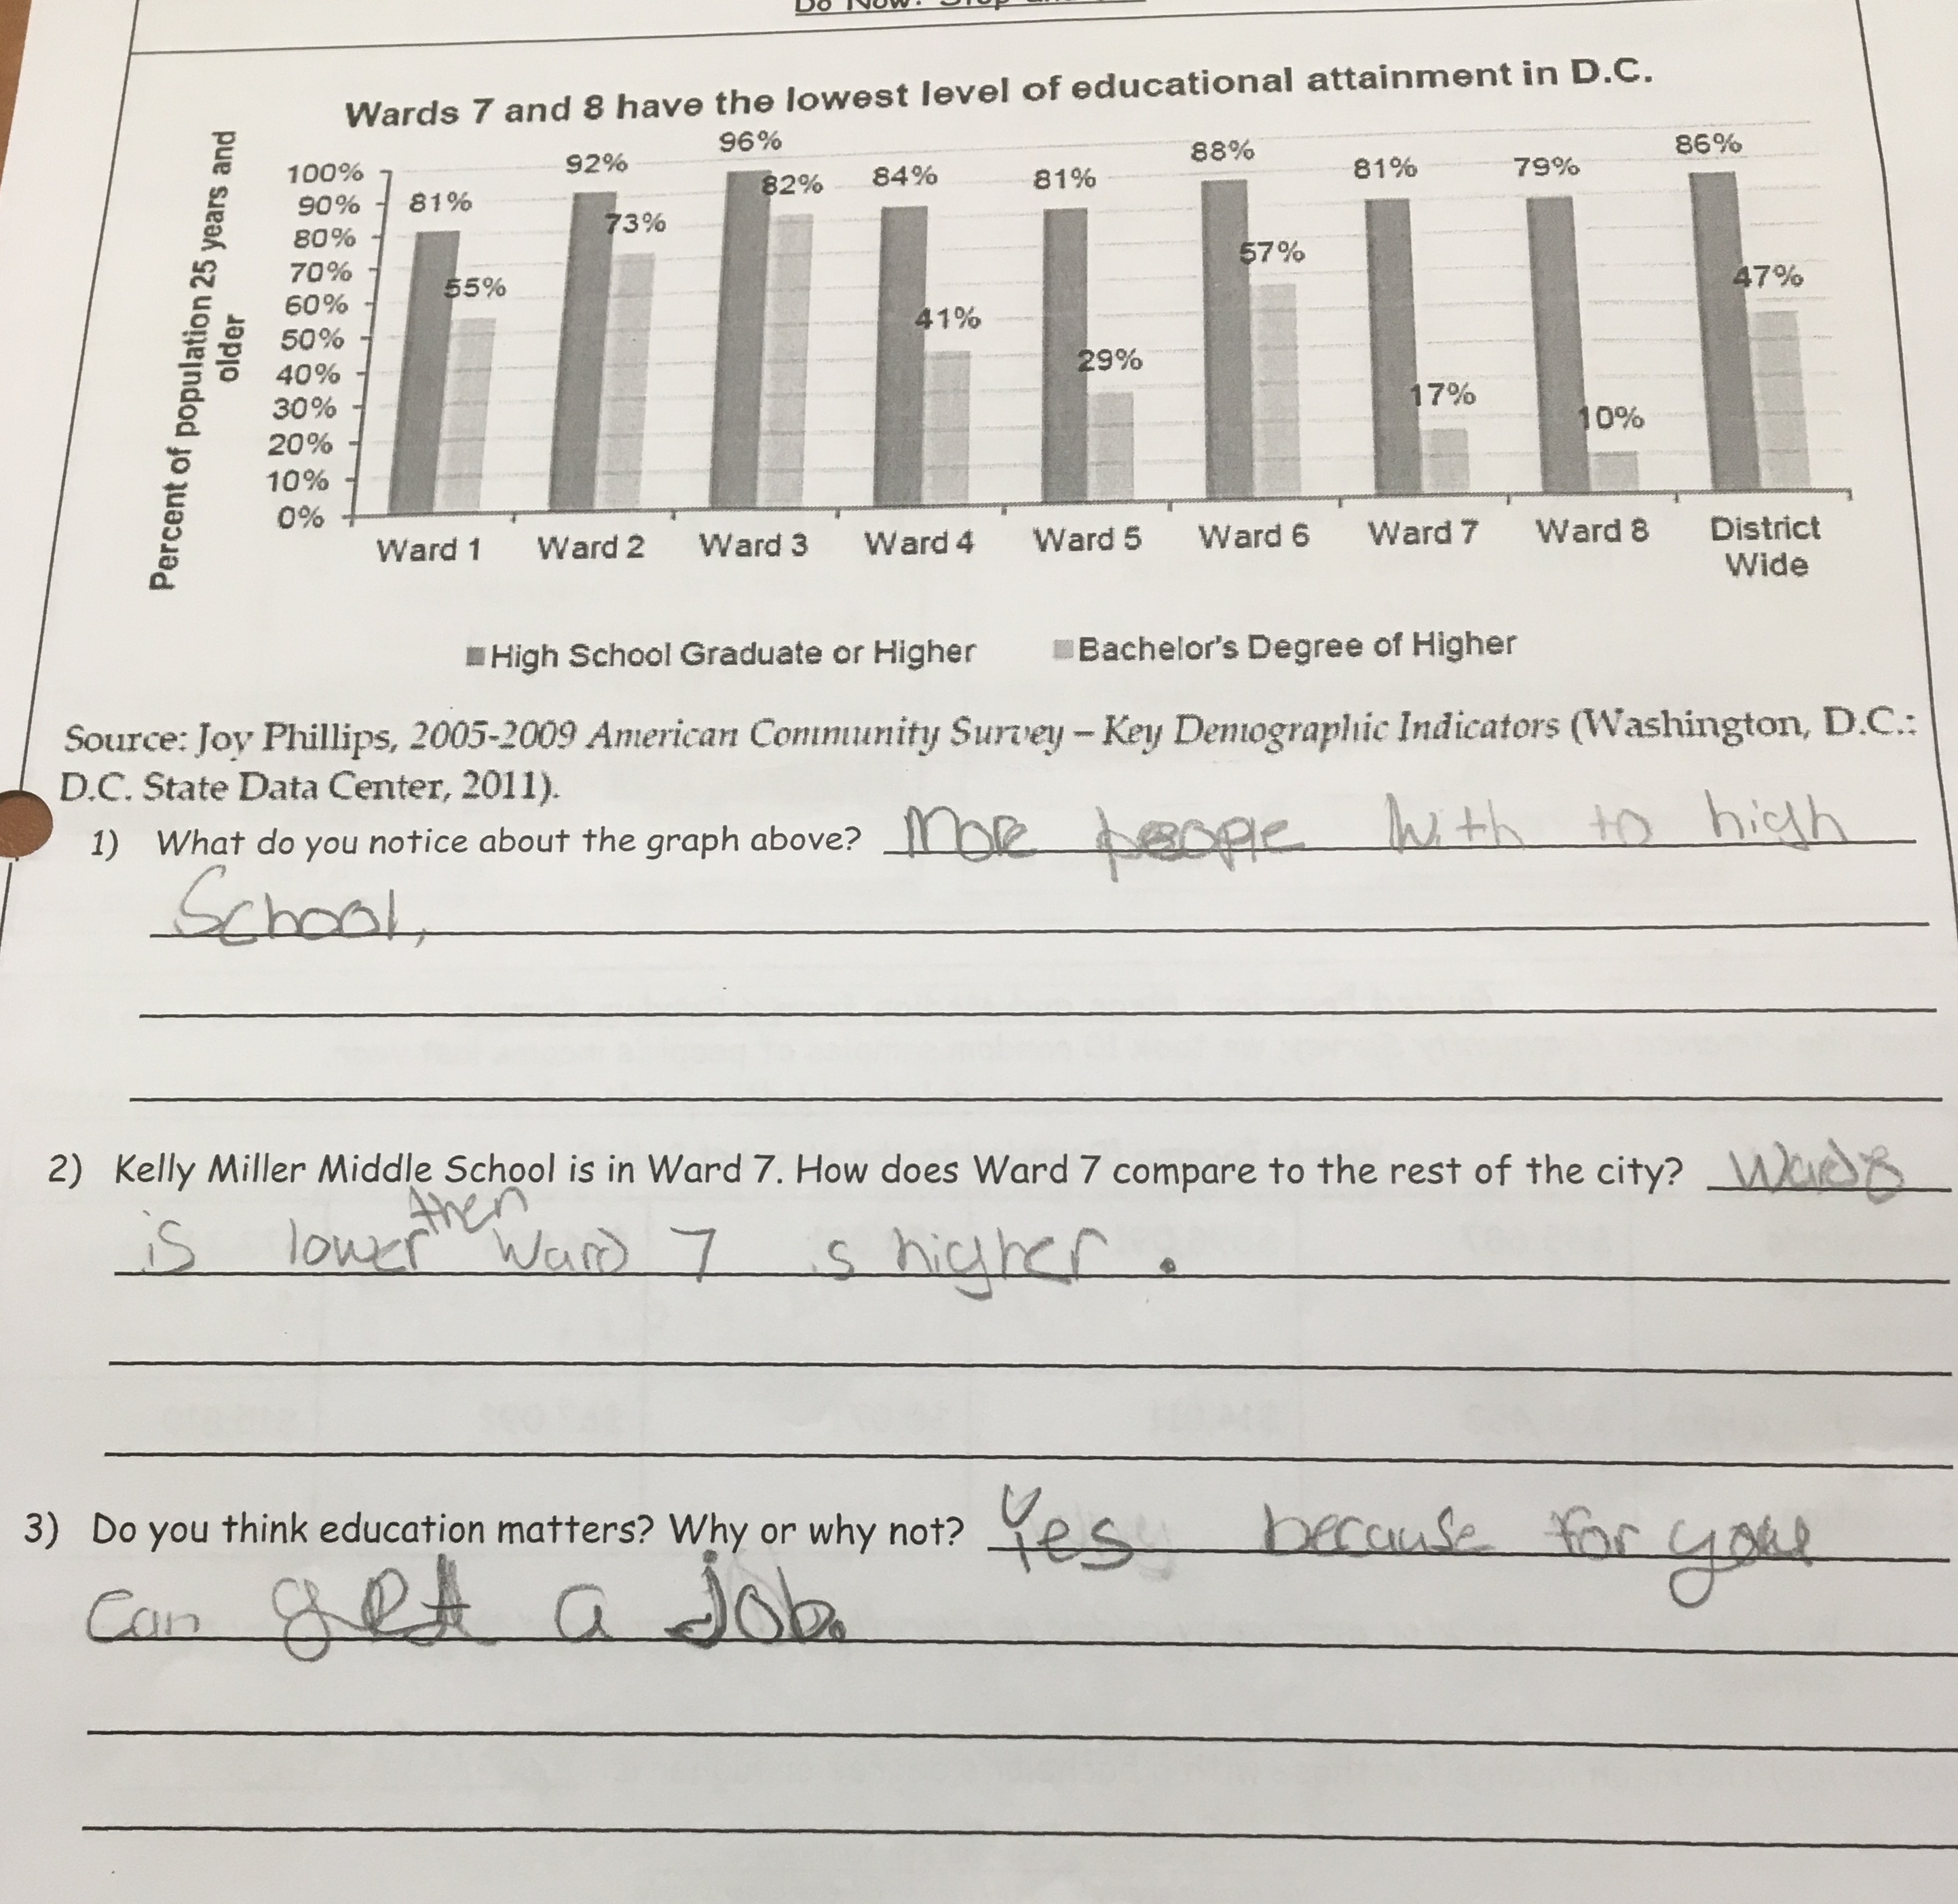 Do Now:
Wards 7 and 8 have the lowest level of educational attainment in D.C.
Percent of population 25 years and
older
100%
90%
80%
70%
60%
50%
40%
30%
20%
10%
0%
81% 55%
92% 73%
96% 82%
84% 41%
81% 29%
88% 57%
81% 17%
79% 10%
86% 47%
Ward 1 Ward 2 Ward 3 Ward 4 Ward 5 Ward 6 Ward 7 Ward 8 District
Wide
High School Graduate or Higher Bachelor's Degree of Higher
Source: Joy Phillips, 2005-2009 American Community Survey – Key Demographic Indicators (Washington, D.C.:
D.C. State Data Center, 2011).
1) What do you notice about the graph above? More people with to high
School,
2) Kelly Miller Middle School is in Ward 7. How does Ward 7 compare to the rest of the city? Ward 8
is lower then Ward 7 is higher.
3) Do you think education matters? Why or why not? Yes because for you
can get a job.